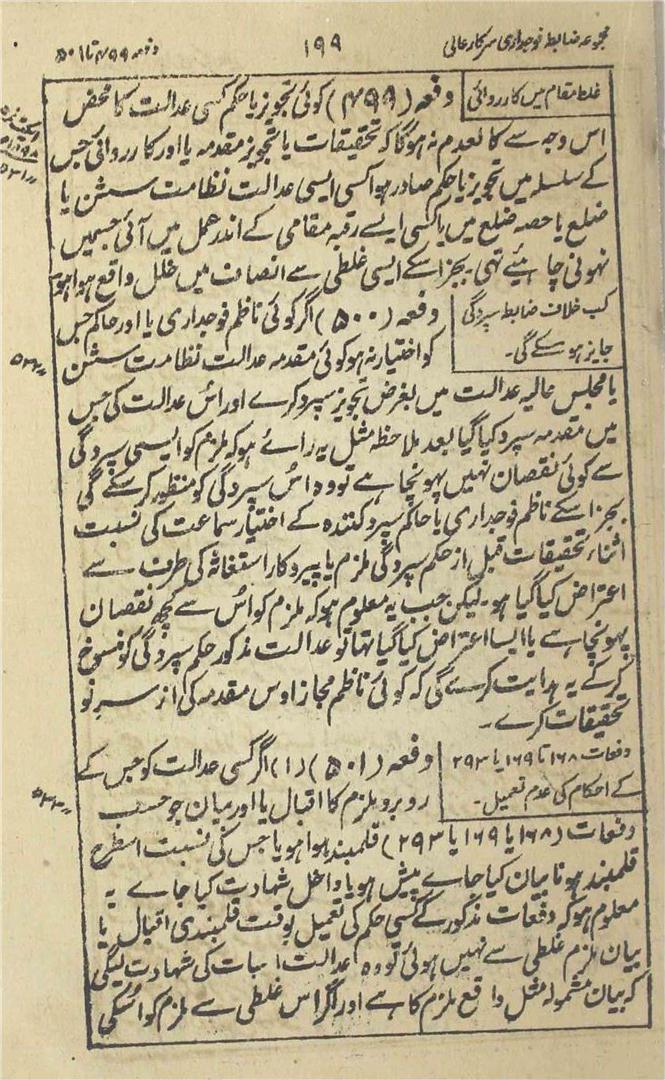 مجموعہ ضابطہ فوجداری سرکار عالی
۱۹۹
دفعہ ۴۹۹ تا ۵۰۱
غلط مقام میں کارروائی
دفعہ (۴۹۹) کوئی تجویز یا حکم کسی عدالت کا محض
اس وجہ سے کالعدم نہ ہوگا کہ تحقیقات یا تجویز مقدمہ یا اور کارروائی جس
کے سلسلہ میں تجویز یا حکم صادر ہوا کسی ایسی عدالت نظامت سشن یا
ضلع یا حصہ ضلع میں یا کسی ایسے رقبہ مقامی کے اندر عمل میں آئی جسمیں
نہونی چاہیئے تہی بجز اسکے ایسی غلطی سے انصاف میں خلل واقع ہوا ہو
کب خلاف ضابطہ سپردگی
جایز ہو سکے گی۔
دفعہ (۵۰۰) اگر کوئی ناظم فوجداری یا اور حاکم جس
کو اختیار نہو کوئی مقدمہ عدالت نظامت سشن
۵۳۲ //
یا مجلس عالیہ عدالت میں بغرض تجویز سپرد کرے اور اس عدالت کی جس
میں مقدمہ سپرد کیا گیا بعد ملاحظہ مثل یہ رائے ہو کہ ملزم کو ایسی سپردگی
سے کوئی نقصان نہیں پہونچا ہے تو وہ اُس سپردگی کو منظور کر سکے گی
بجز اسکے ناظم فوجداری یا حاکم سپرد کنندہ کے اختیار سماعت کی نسبت
اثناء تحقیقات قبل از حکم سپردگی ملزم یا پیروکار استغاثہ کی طرف سے
اعتراض کیا گیا ہو۔ لیکن جب یہ معلوم ہو کہ ملزم کو اُس سے کچھ نقصان
پہونچا ہے یا ایسا اعتراض کیا گیا تہا تو عدالت مذکور حکم سپردگی کو منسوخ
کرکے یہ ہدایت کرے گی کہ کوئی ناظم مجاز اوس مقدمہ کی از سر نو
تحقیقات کرے۔
دفعات ۱۶۸ تا ۱۶۹ یا ۲۹۳
کے احکام کی عدم تعمیل۔
دفعہ (۵۰۱) (۱) اگر کسی عدالت کو جس کے
روبرو ملزم کا اقبال یا اور بیان جو حسب
۵۳۳ //
دفعات (۱۶۸ یا ۱۶۹ یا ۲۹۳) قلمبند ہوا ہو یا جس کی نسبت اسطرح
قلمبند ہونا بیان کیا جاے پیش ہو یا داخل شہادت کیا جاے یہ
معلوم ہو کہ دفعات مذکور کے کسی حکم کی تعمیل بوقت قلمبندی اقبال یا
بیان ملزم غلطی سے نہیں ہوئی تو وہ عدالت اسبات کی شہادت لیگی
کہ بیان مشمولہ مثل واقع ملزم کا ہے اور اگر اس غلطی سے ملزم کو اسکی